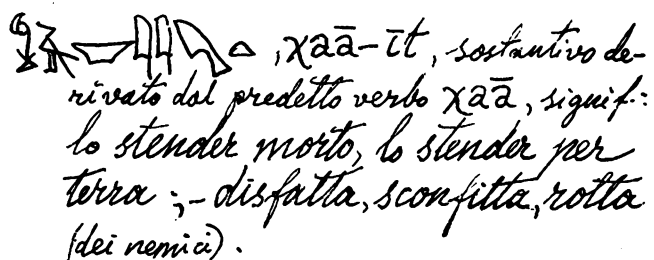 , χaā-īt, sostantivo de-
rivato dal predetto verbo χaā, signif.:
lo stender morto, lo stender per
terra ;- disfatta, sconfitta, rotta
(dei nemici).